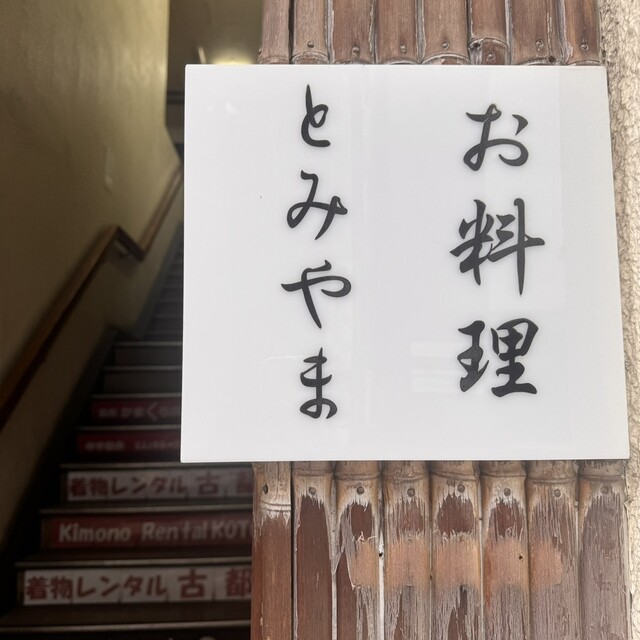 お料理
とみやま
着物レンタル 古
Kimono Rental KO
着物レンタル 古都